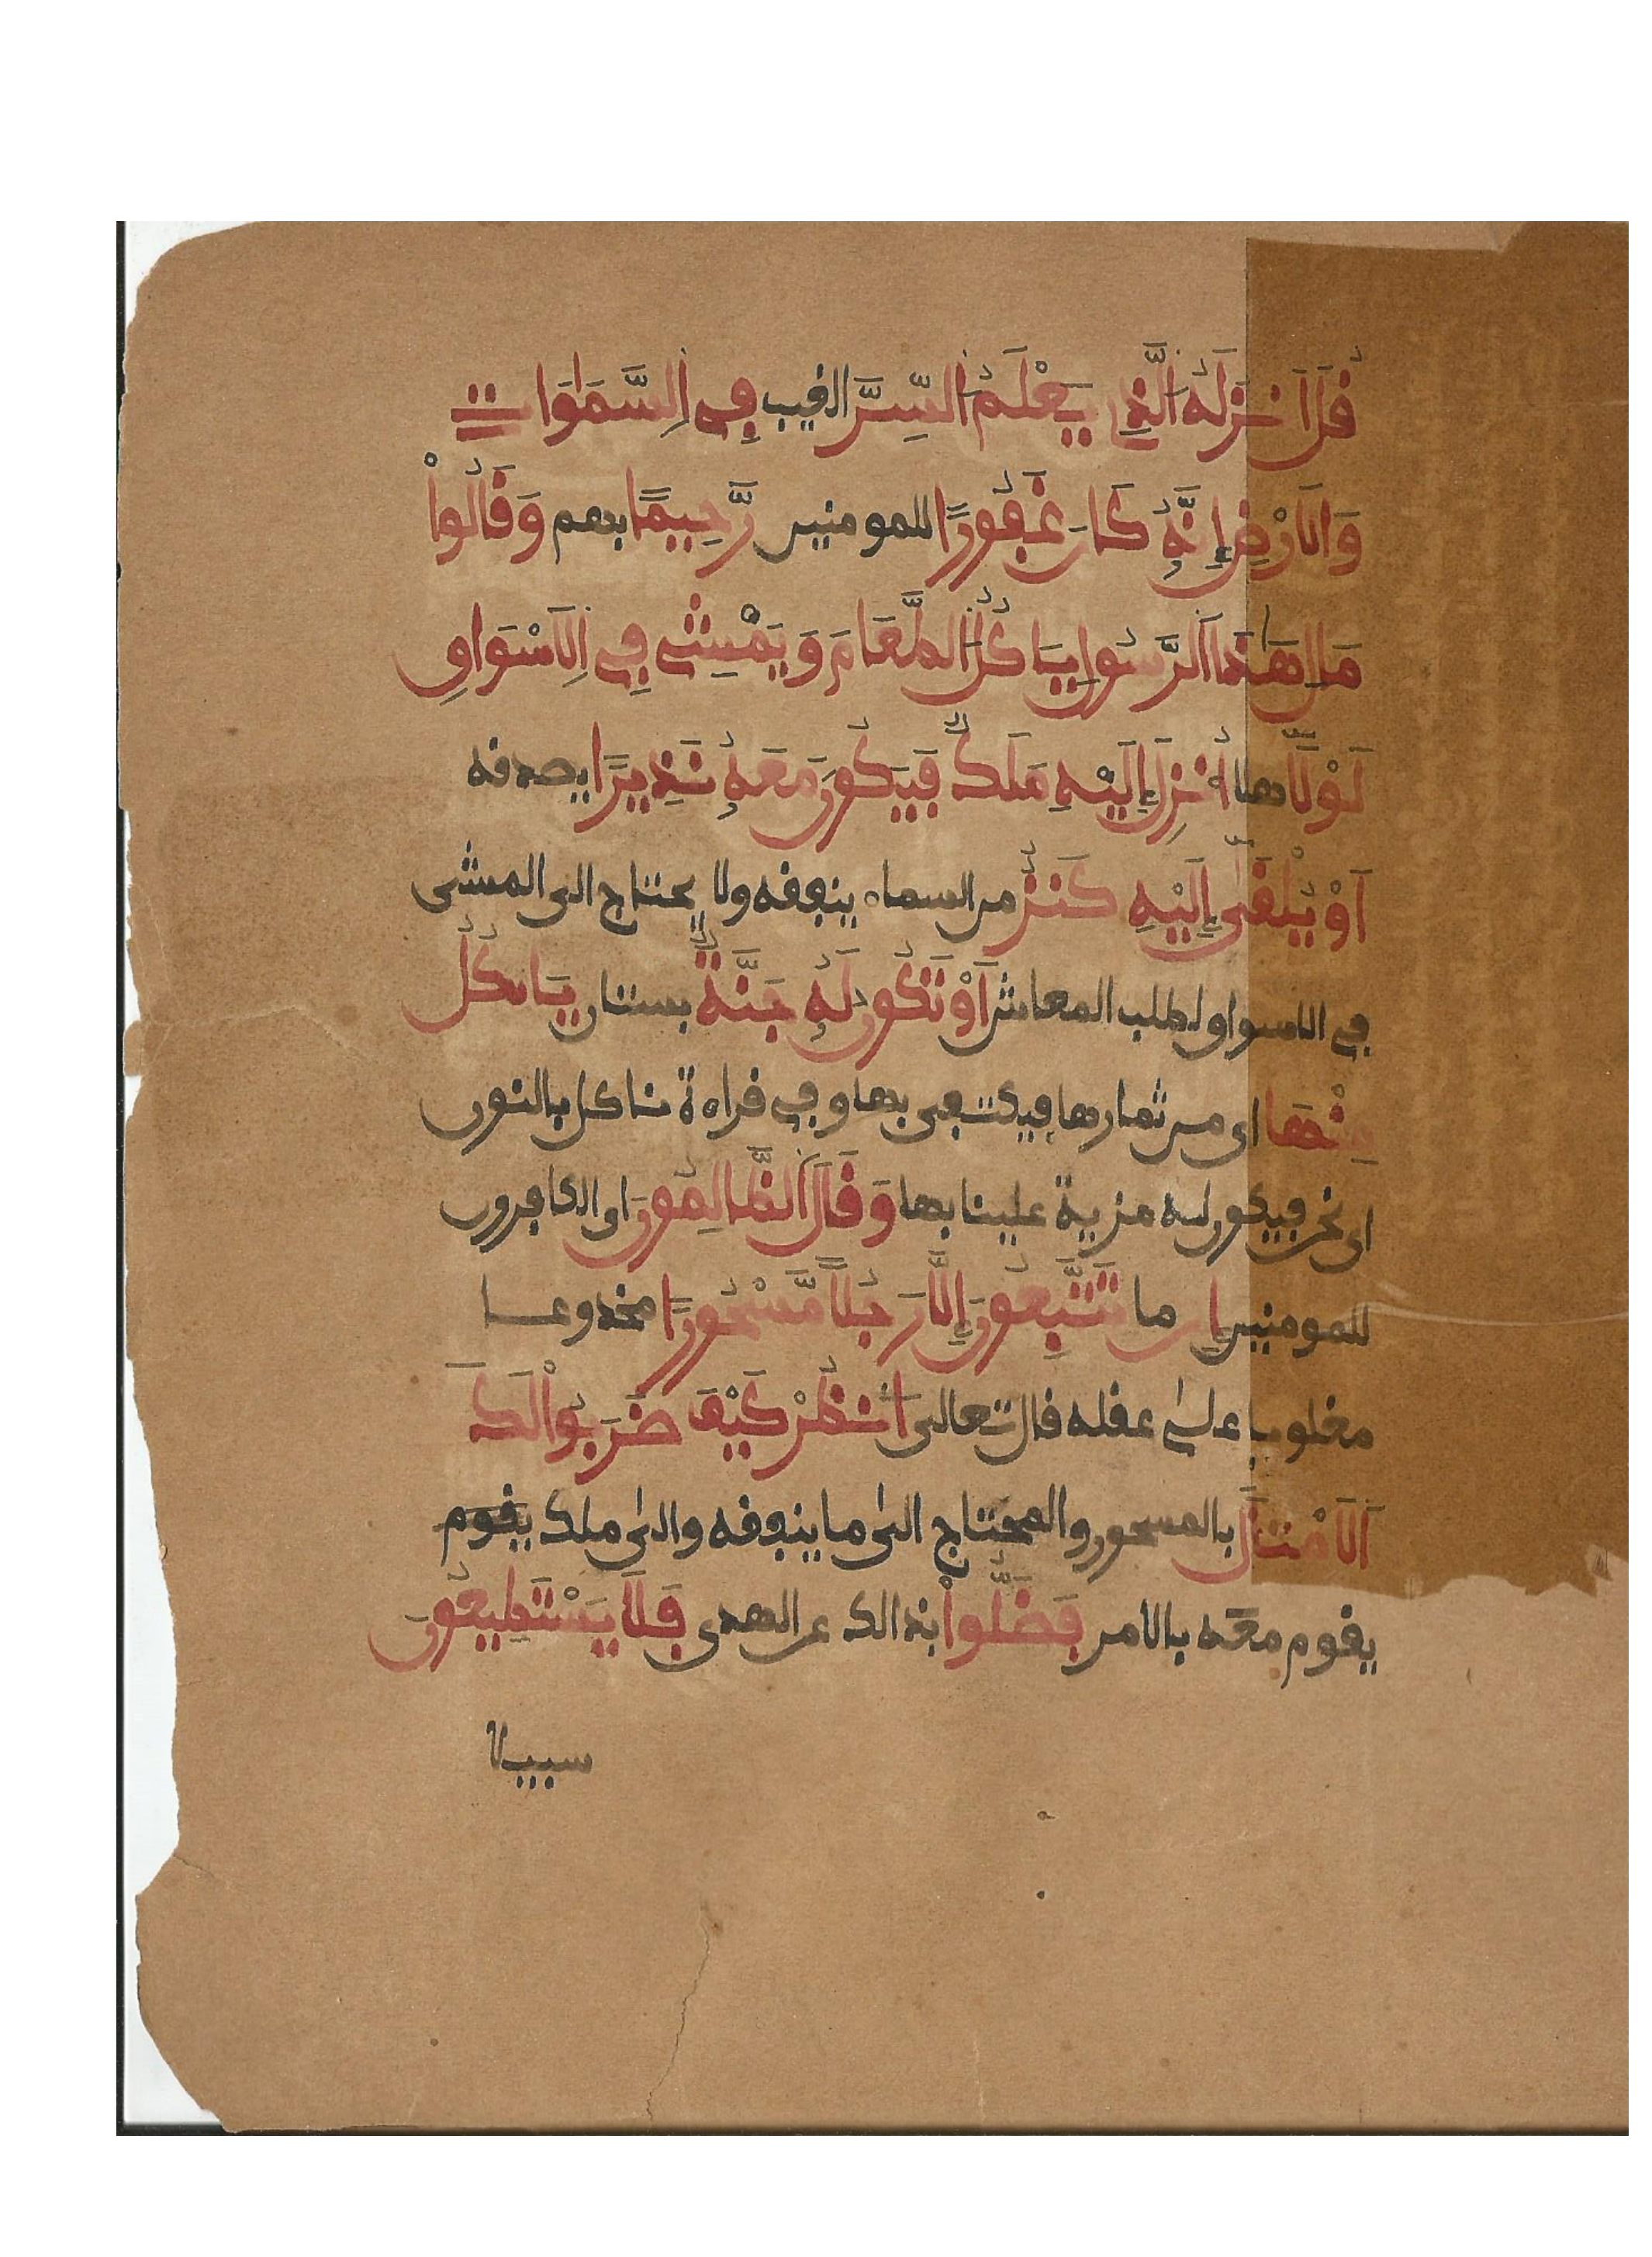 قُلَ اَنزَلَهُ اَلَّذِے يَعْلَمُ اَلسِّرَّ الغيب فِے اِلسَّمَٰوَٰاتِ
وَالَارْضِ إِنَّهُۥ كَانَ غَفُورًا للمومنين رَّحِيمًا بهم وَقَالُواْ
مَالِ هَٰذَا اَلرَّسُولِ يَاكُلُ اُلطَّعَامَ وَيَمْشِے فِے اِلَاسْوَاقِ
لَوْلَآ هلا أُنزِلَ إِلَيْهِ مَلَكٌ فَيَكُونَ مَعَهُۥ نَذِيرًا يصدقه
اَوْ يُلْقَىٰٓ إِلَيْهِ كَنزٌ من السماء ينفقه ولا يحتاج الى المشى
فى الاسواق لطلب المعاش اَوْ تَكُونُ لَهُۥ جَنَّةٌ بستان يَاكُلُ
مِنْهَا اى من ثمارها فيكتفى بها وفى قراءة ناكل بالنون
اى نحن فيكون له مزية علينا بها وَقَالَ اَلظَّٰلِمُونَ اى الكافرون
للمومنين إِن ما تَتَّبِعُونَ إِلَّا رَجُلًا مَّسْحُورًا مخدوعا
مغلوبا على عقله قال تعالى اَنظُرْ كَيْفَ ضَرَبُواْ لَكَ
اَلَامْثَٰلَ بالمسحور والمحتاج الى ما ينفقه والى ملك يقوم
يقوم معه بالامر فَضَلُّواْ بذالك عن الهدى فَلَا يَسْتَطِيعُونَ
سبيلا